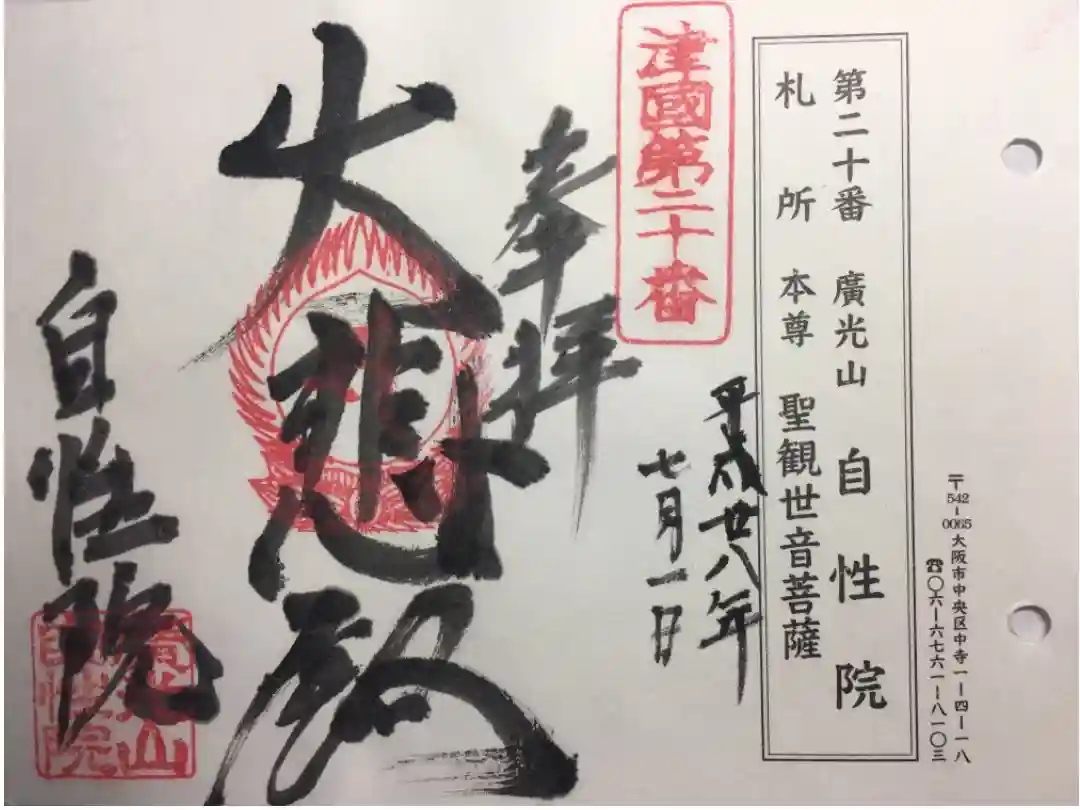 第二十番 廣光山 自性院
札所 本尊 聖観世音菩薩
〒542-0065大阪市中央区中寺一ー四ー一八
☎〇六ー六七六一ー八一〇三
津國第二十番
平成廿八年
七月一日
奉拝
大悲殿
自性院
廣光山
自性院